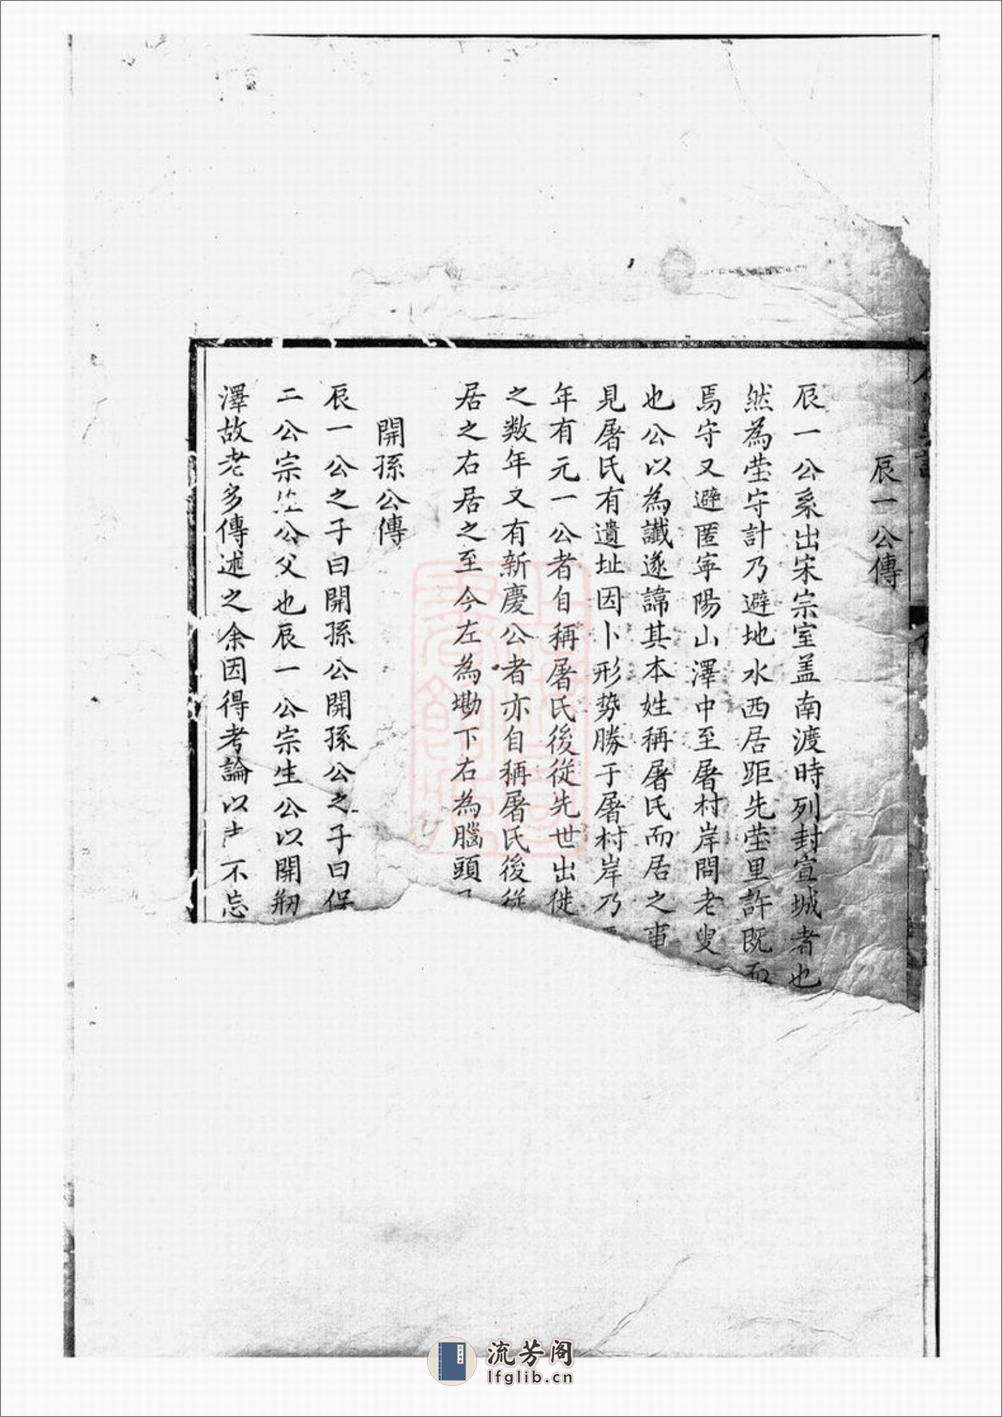 辰一公傳
辰一公系出宋宗室盖南渡時列封宣城者也
然為塋守計乃避地水西居距先塋里許既而
焉守又避匿寧陽山澤中至屠村岸問老叟
也公以為讖遂諱其本姓稱屠氏而居之事
見屠氏有遺址因卜形勢勝于屠村岸乃
年有元一公者自稱屠氏後從先世出徙
之数年又有新慶公者亦自稱屠氏後從
居之右居之至今左為墈下右為腦頭
開孫公傳
辰一公之子曰開孫公開孫公之子曰保
二公宗 公父也辰一公宗生公以開剏
澤故老多傳述之余因得考論以 不忘
流芳阁
lfglib.cn